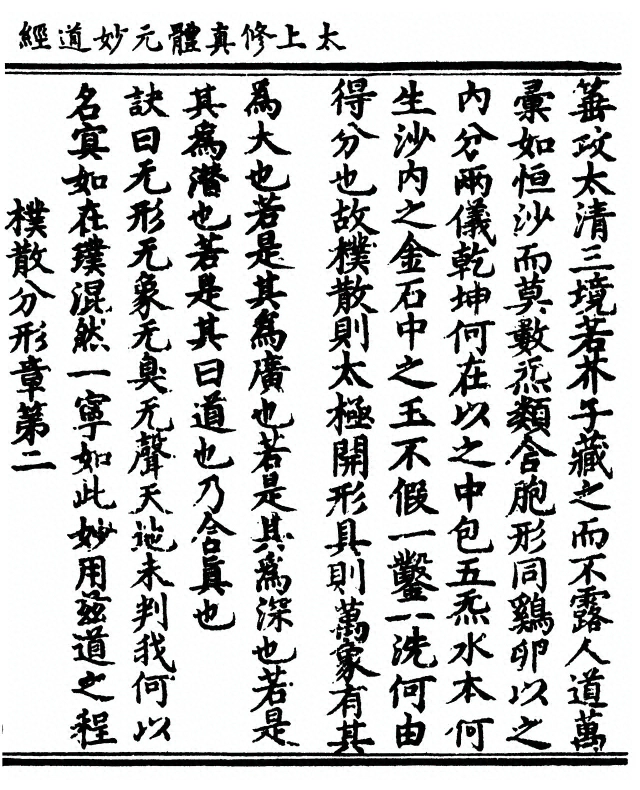 太上修真體元妙道經
蓋玫太清三境若芥子藏之而不露人道萬
彙如恒沙而莫數炁類含胞形同鷄卵以之
內分兩儀乾坤何在以之中包五炁水本何
生沙內之金石中之玉不假一鑿一洗何由
得分也故樸散則太極開形具則萬象有其
為大也若是其為廣也若是其為深也若是
其為潛也若是其曰道也乃含真也
訣曰无形无象无臭无聲天地未判我何以
名寘如在璞混然一寧如此妙用茲道之程
樸散分形章第二